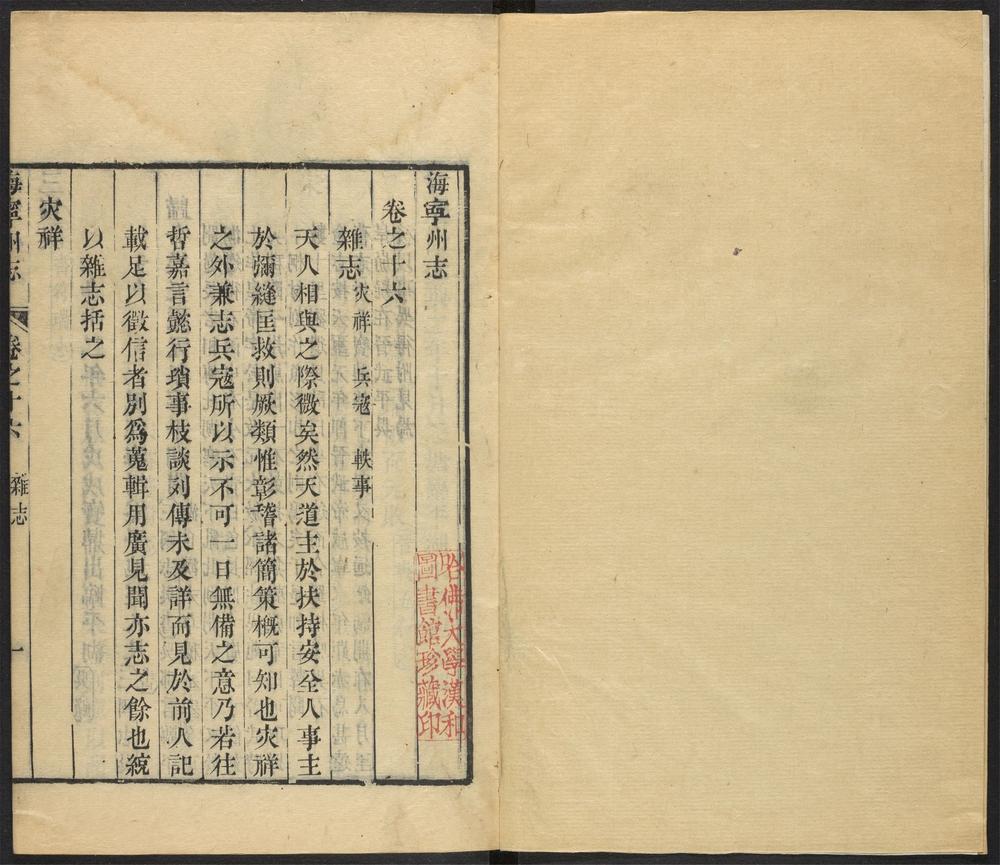 海寧州志
卷之十六
雜志 灾祥 兵寇 軼事
天人相與之際微矣然天道主於扶持安全人事主
於彌縫匡救則厥類惟彰稽諸簡策概可知也灾祥
之外兼志兵寇所以示不可一日無備之意乃若往
哲嘉言懿行瑣事枝談列傳未及詳而見於前人記
載足以徵信者別爲蒐輯用廣見聞亦志之餘也統
以雜志括之
灾祥
海寧州志 卷之十六 雜志 一
哈佛大學漢和
圖書館珍藏印